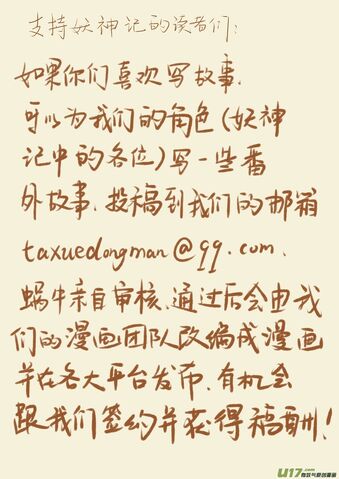 支持妖神记的读者们：
如果你们喜欢写故事.
可以为我们的角色（妖神
记中的各位）写一些番
外故事.投稿到我们的邮箱
taxuedongman@qq.com.
蜗牛亲自审核.通过后会由我
们的漫画团队改编成漫画
并在各大平台发布.有机会
跟我们签约并获得稿酬！
U17.com